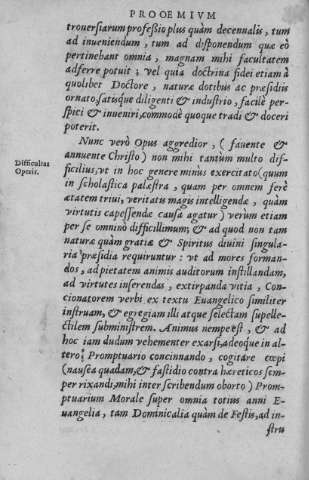 PROOEMIVM
trouersiarum professio plus quàm decennalis, tum
ad inueniendum, tum ad disponendum quæ eò
pertinebant omnia, magnam mihi facultatem
adferre potuit; vel quia doctrina fidei etiam à
quolibet Doctore, naturæ dotibus ac præsidiis
ornato, satisque diligenti & industrio, facilè per-
spici & inueniri, commodè quoque tradi & doceri
poterit.
Nunc verò Opus aggredior, (fauente &
annuente Christo) non mihi tantum multo dif-
Difficultas
Operis.
ficilius, vt in hoc genere minus exercitato (quum
in scholastica palæstra, quam per omnem ferè
ætatem triui, veritatis magis intelligendæ, quàm
virtutis capessendæ causa agatur) verùm etiam
per se omninò difficillimum; & ad quod non tam
naturæ quàm gratiæ & Spiritus diuini singula-
ria præsidia requiruntur: vt ad mores forman-
dos, ad pietatem animis auditorum instillandam,
ad virtutes inserendas, extirpanda vitia, Con-
cionatorem verbi ex textu Euangelico similiter
instruam, & egregiam illi atque selectam supelle-
ctilem subministrem. Animus nempe est, & ad
hoc iam dudum vehementer exarsi, adeoque in al-
tero Promptuario concinnando, cogitare cœpi
(nausea quadam, & fastidio contra hæreticos sem-
per rixandi, mihi inter scribendum oborto) Prom-
ptuarium Morale super omnia totius anni E-
uangelia, tam Dominicalia quàm de Festis, ad in-
stru